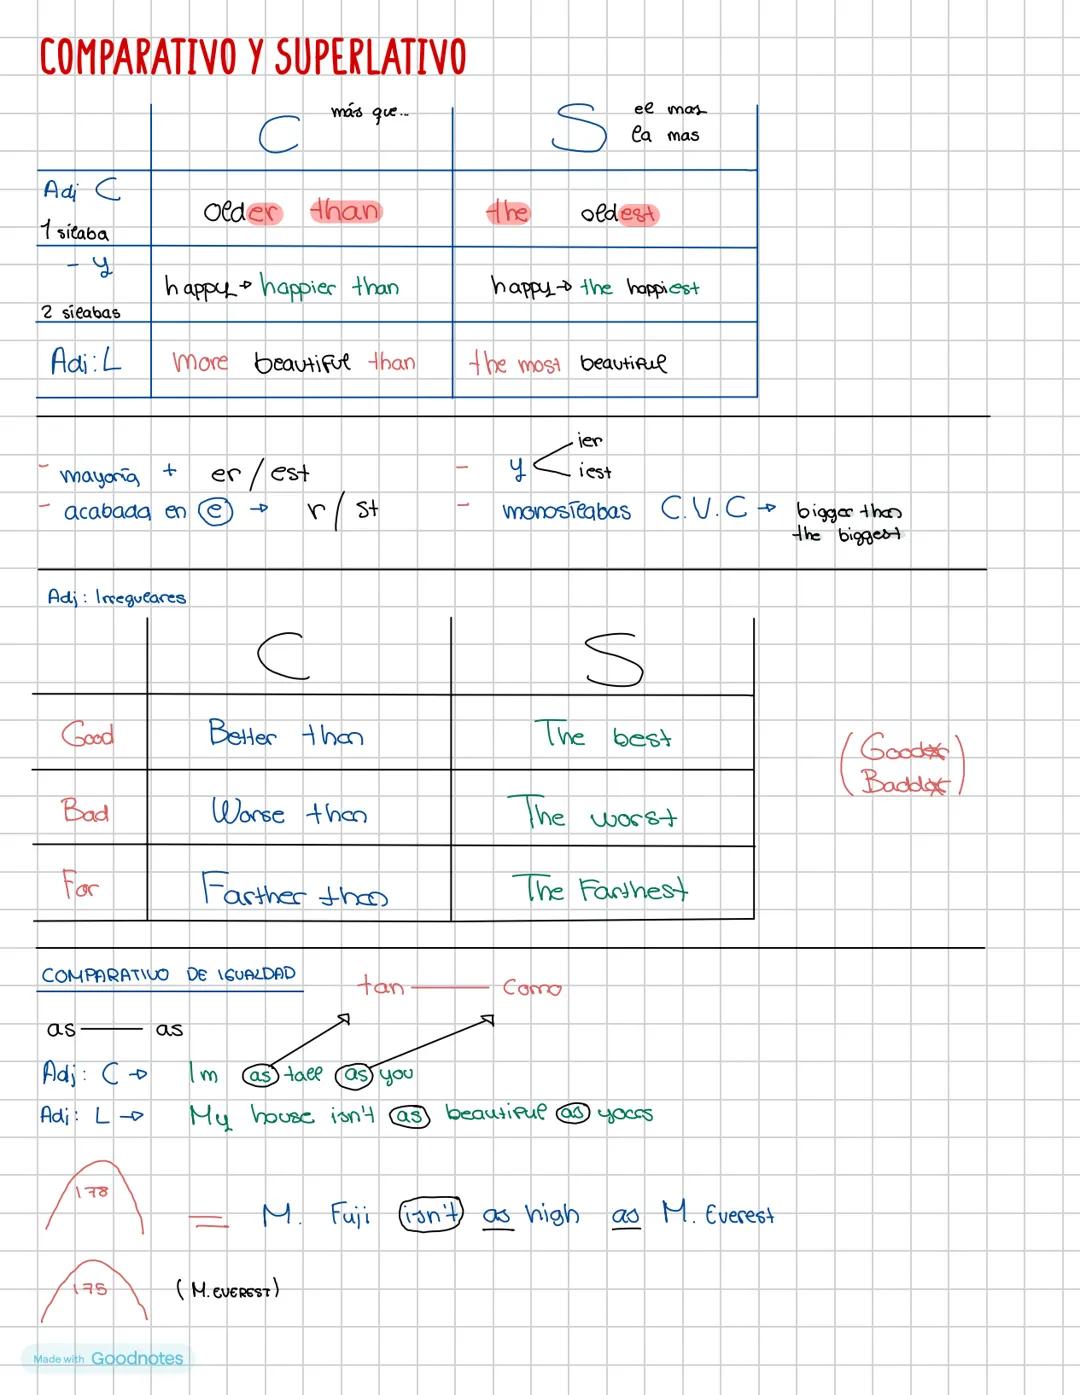 COMPARATIVO Y SUPERLATIVO
C más que... S el mas
la mas
Adj C
1 sílaba
older than the oldest
- y
2 sílabas
happy → happier than happy → the happiest
Adj: L more beautiful than the most beautiful
- mayoría + er / est
- acabada en e → r / st
- y ier
iest
- monosílabas C.V.C → bigger than
the biggest
Adj: Irregulares
C S
Good Better than The best
Bad Worse than The worst
Far Farther than The Farthest
(Gooder)
(Badder)
COMPARATIVO DE IGUALDAD
tan — Como
as — as
Adj: C → Im as tall as you
Adj: L → My house isn't as beautiful as yours
178
= M. Fuji isn't as high as M. Everest
175
(M. EVEREST)
Made with Goodnotes